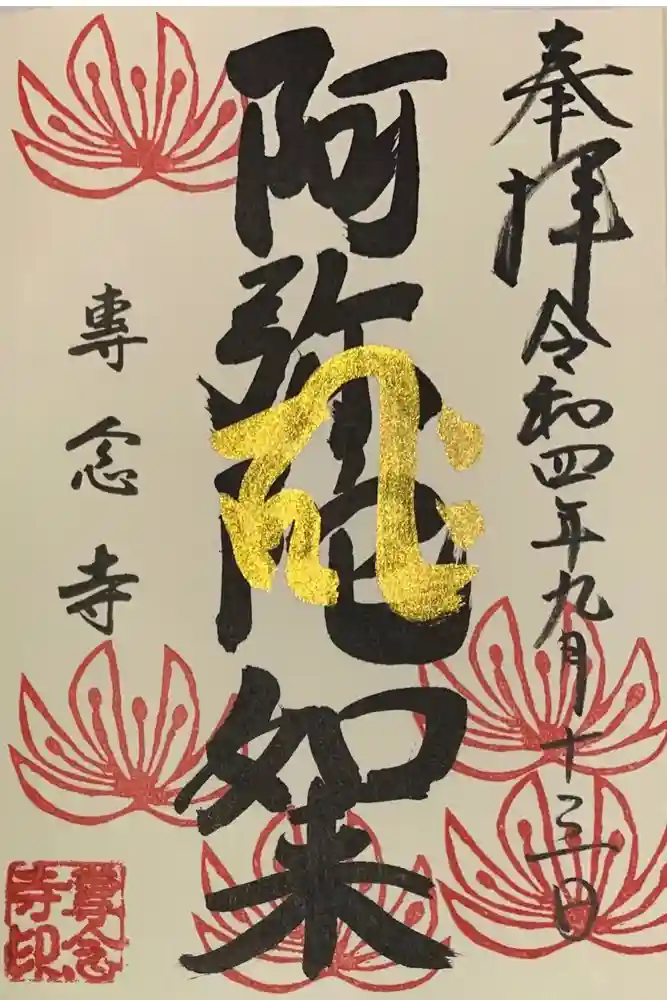 奉拝 令和四年九月十三日
阿弥陀如来
専念寺
専念寺印